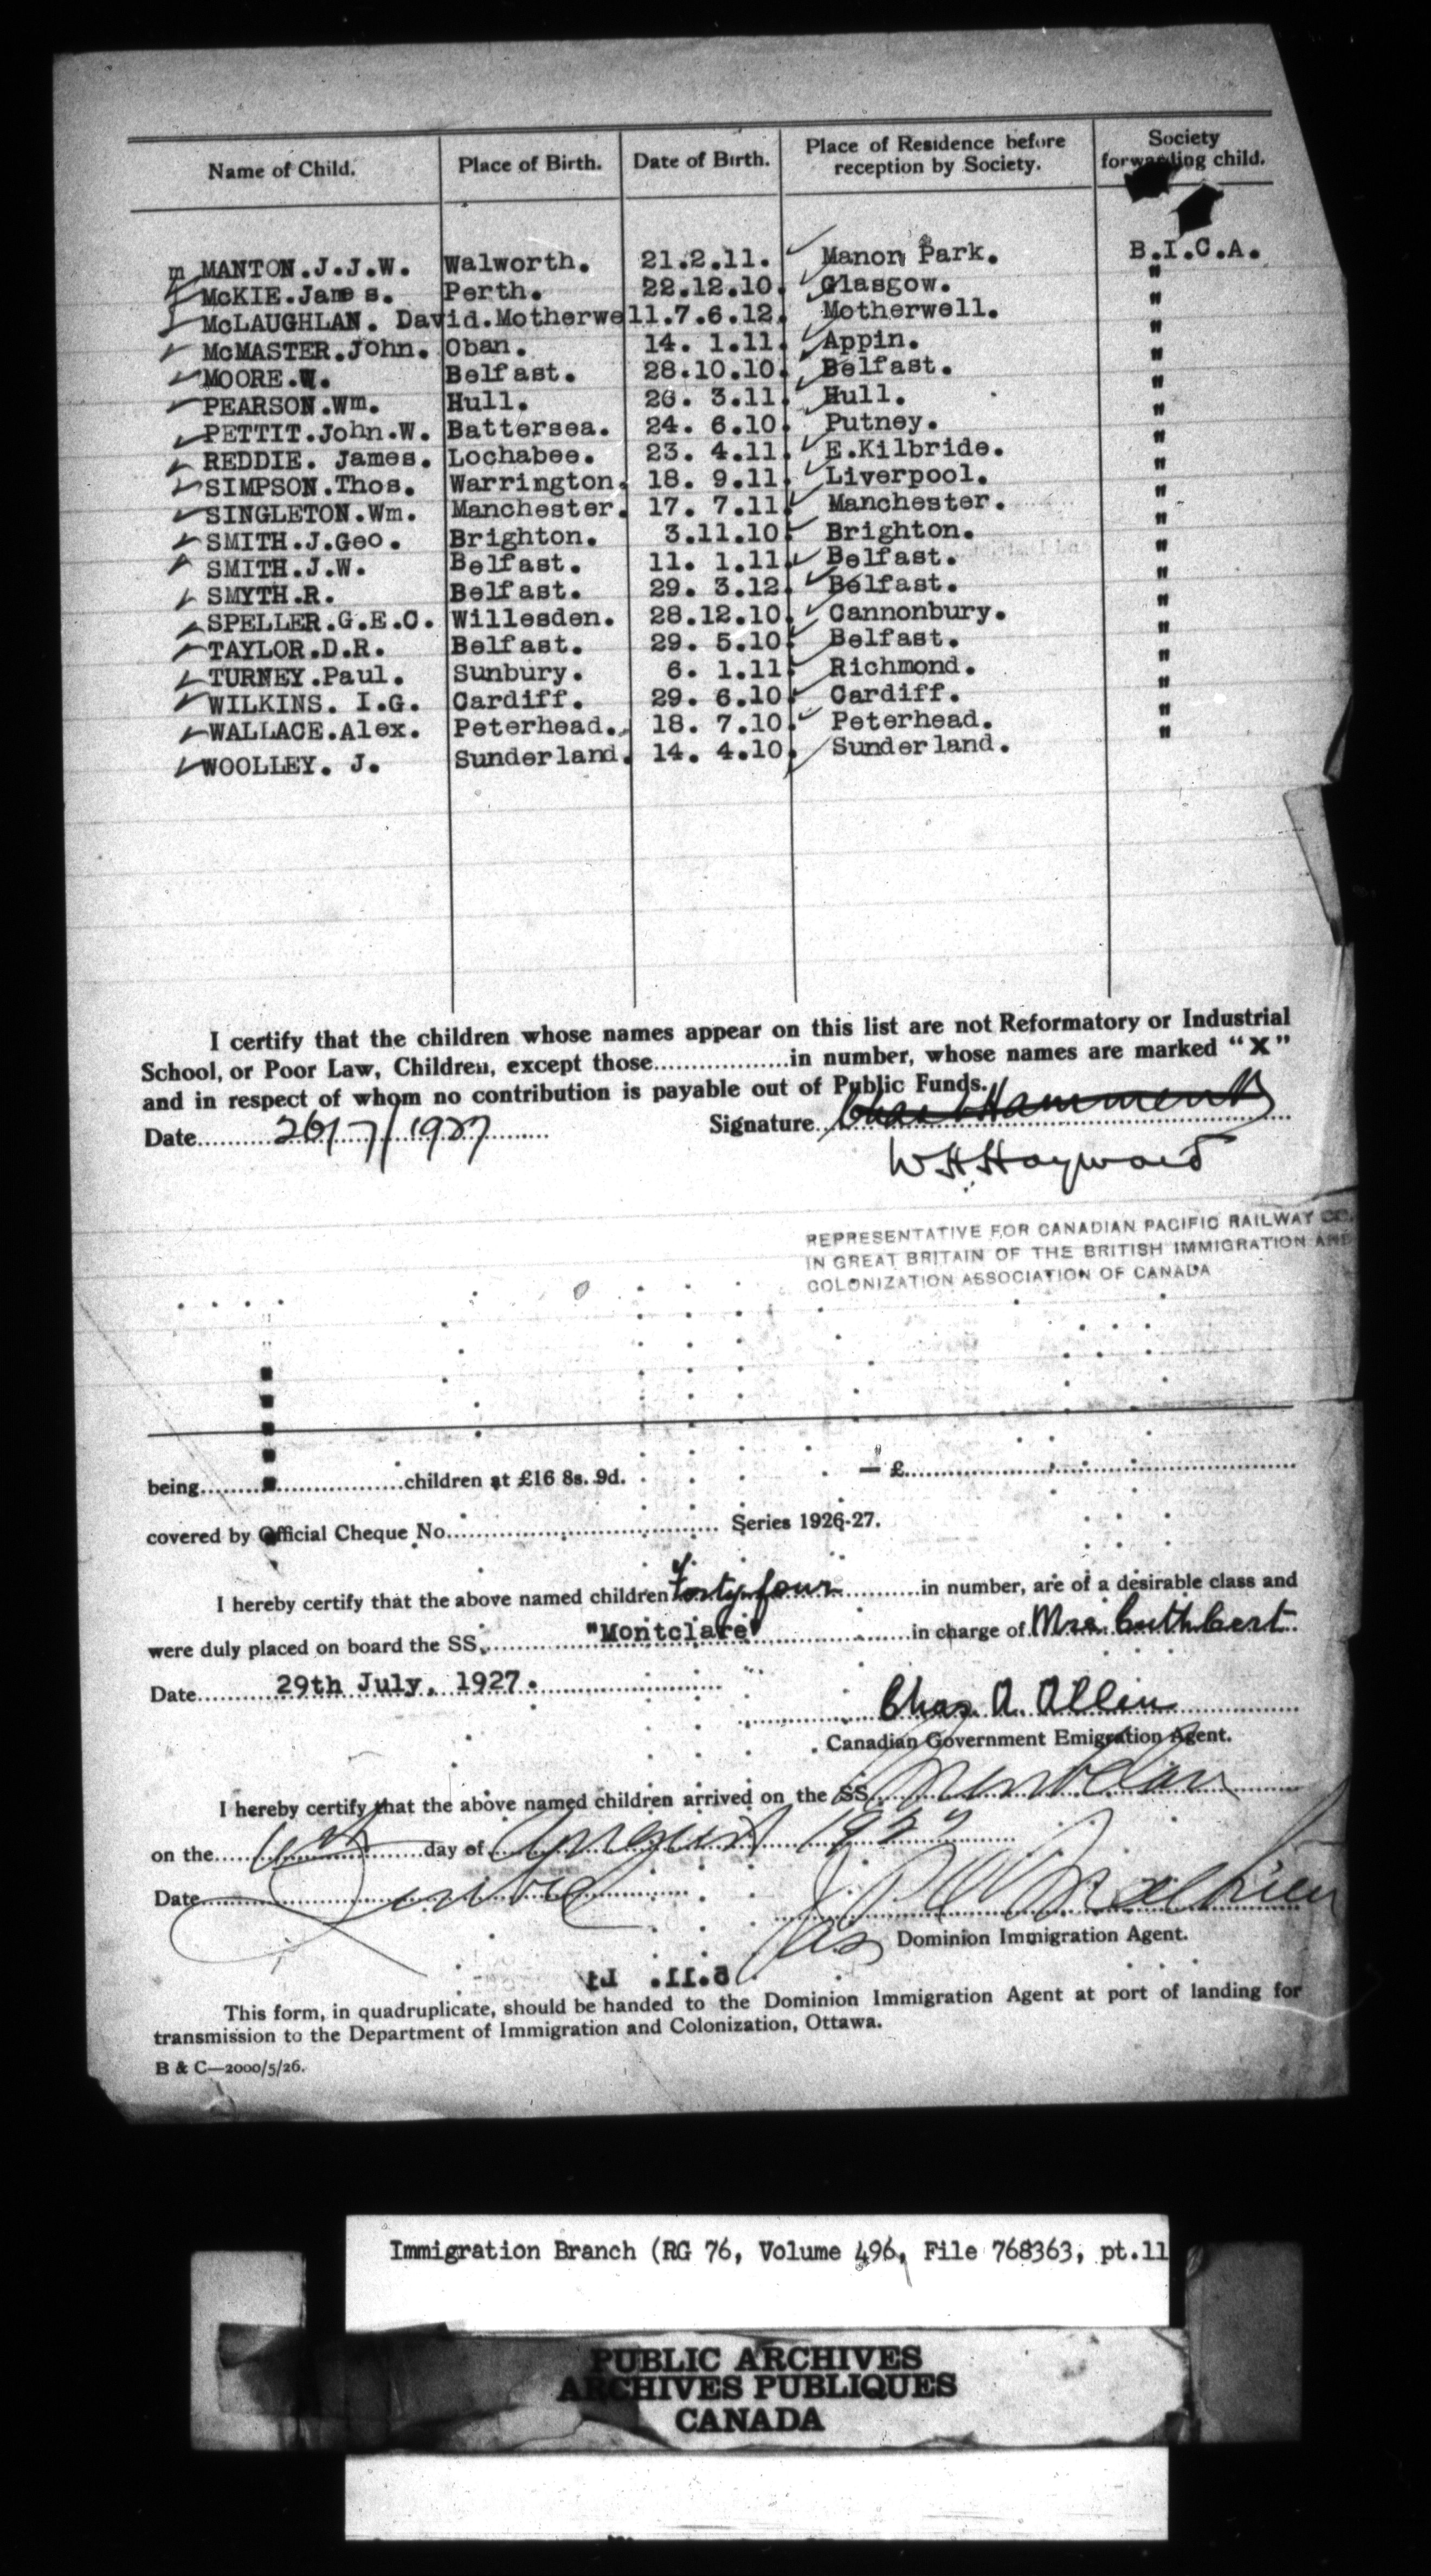 Name of Child. Place of Birth. Date of Birth. Place of Residence before reception by Society. Society forwarding child.
m MANTON.J.J.W. Walworth. 21.2.11. Manor Park. B.I.C.A.
McKIE.James. Perth. 22.12.10. Glasgow. "
McLAUGHLAN. David.Motherwell.7.6.12. Motherwell. "
McMASTER.John. Oban. 14. 1.11. Appin. "
MOORE.W. Belfast. 28.10.10. Belfast. "
PEARSON.Wm. Hull. 26. 3.11. Hull. "
PETTIT.John.W. Battersea. 24. 6.10. Putney. "
REDDIE. James. Lochabee. 23. 4.11. E.Kilbride. "
SIMPSON.Thos. Warrington. 18. 9.11. Liverpool. "
SINGLETON.Wm. Manchester. 17. 7.11. Manchester. "
SMITH.J.Geo. Brighton. 3.11.10. Brighton. "
SMITH.J.W. Belfast. 11. 1.11. Belfast. "
SMYTH.R. Belfast. 29. 3.12. Belfast. "
SPELLER.G.E.C. Willesden. 28.12.10. Cannonbury. "
TAYLOR.D.R. Belfast. 29. 5.10. Belfast. "
TURNEY.Paul. Sunbury. 6. 1.11. Richmond. "
WILKINS. I.G. Cardiff. 29. 6.10. Cardiff. "
WALLACE.Alex. Peterhead. 18. 7.10. Peterhead. "
WOOLLEY. J. Sunderland. 14. 4.10. Sunderland.
I certify that the children whose names appear on this list are not Reformatory or Industrial
School, or Poor Law, Children, except those..................in number, whose names are marked "X"
and in respect of whom no contribution is payable out of Public Funds.
Date 26/7/1927 Signature
W H Hayward
REPRESENTATIVE FOR CANADIAN PACIFIC RAILWAY CO.
IN GREAT BRITAIN OF THE BRITISH IMMIGRATION AND
COLONIZATION ASSOCIATION OF CANADA
being..........children at £16 8s. 9d. — £..........
covered by Official Cheque No.......... Series 1926-27.
I hereby certify that the above named children Forty four in number, are of a desirable class and
were duly placed on board the SS. "Montclare" in charge of Mrs. Cuthbert
Date 29th July, 1927.
Chas. A. Allen
Canadian Government Emigration Agent.
I hereby certify that the above named children arrived on the SS Montclare
on the day of August 1927
Date
Dominion Immigration Agent.
This form, in quadruplicate, should be handed to the Dominion Immigration Agent at port of landing for
transmission to the Department of Immigration and Colonization, Ottawa.
B & C—2000/5/26.
Immigration Branch (RG 76, Volume 496, File 768363, pt.11
PUBLIC ARCHIVES
ARCHIVES PUBLIQUES
CANADA